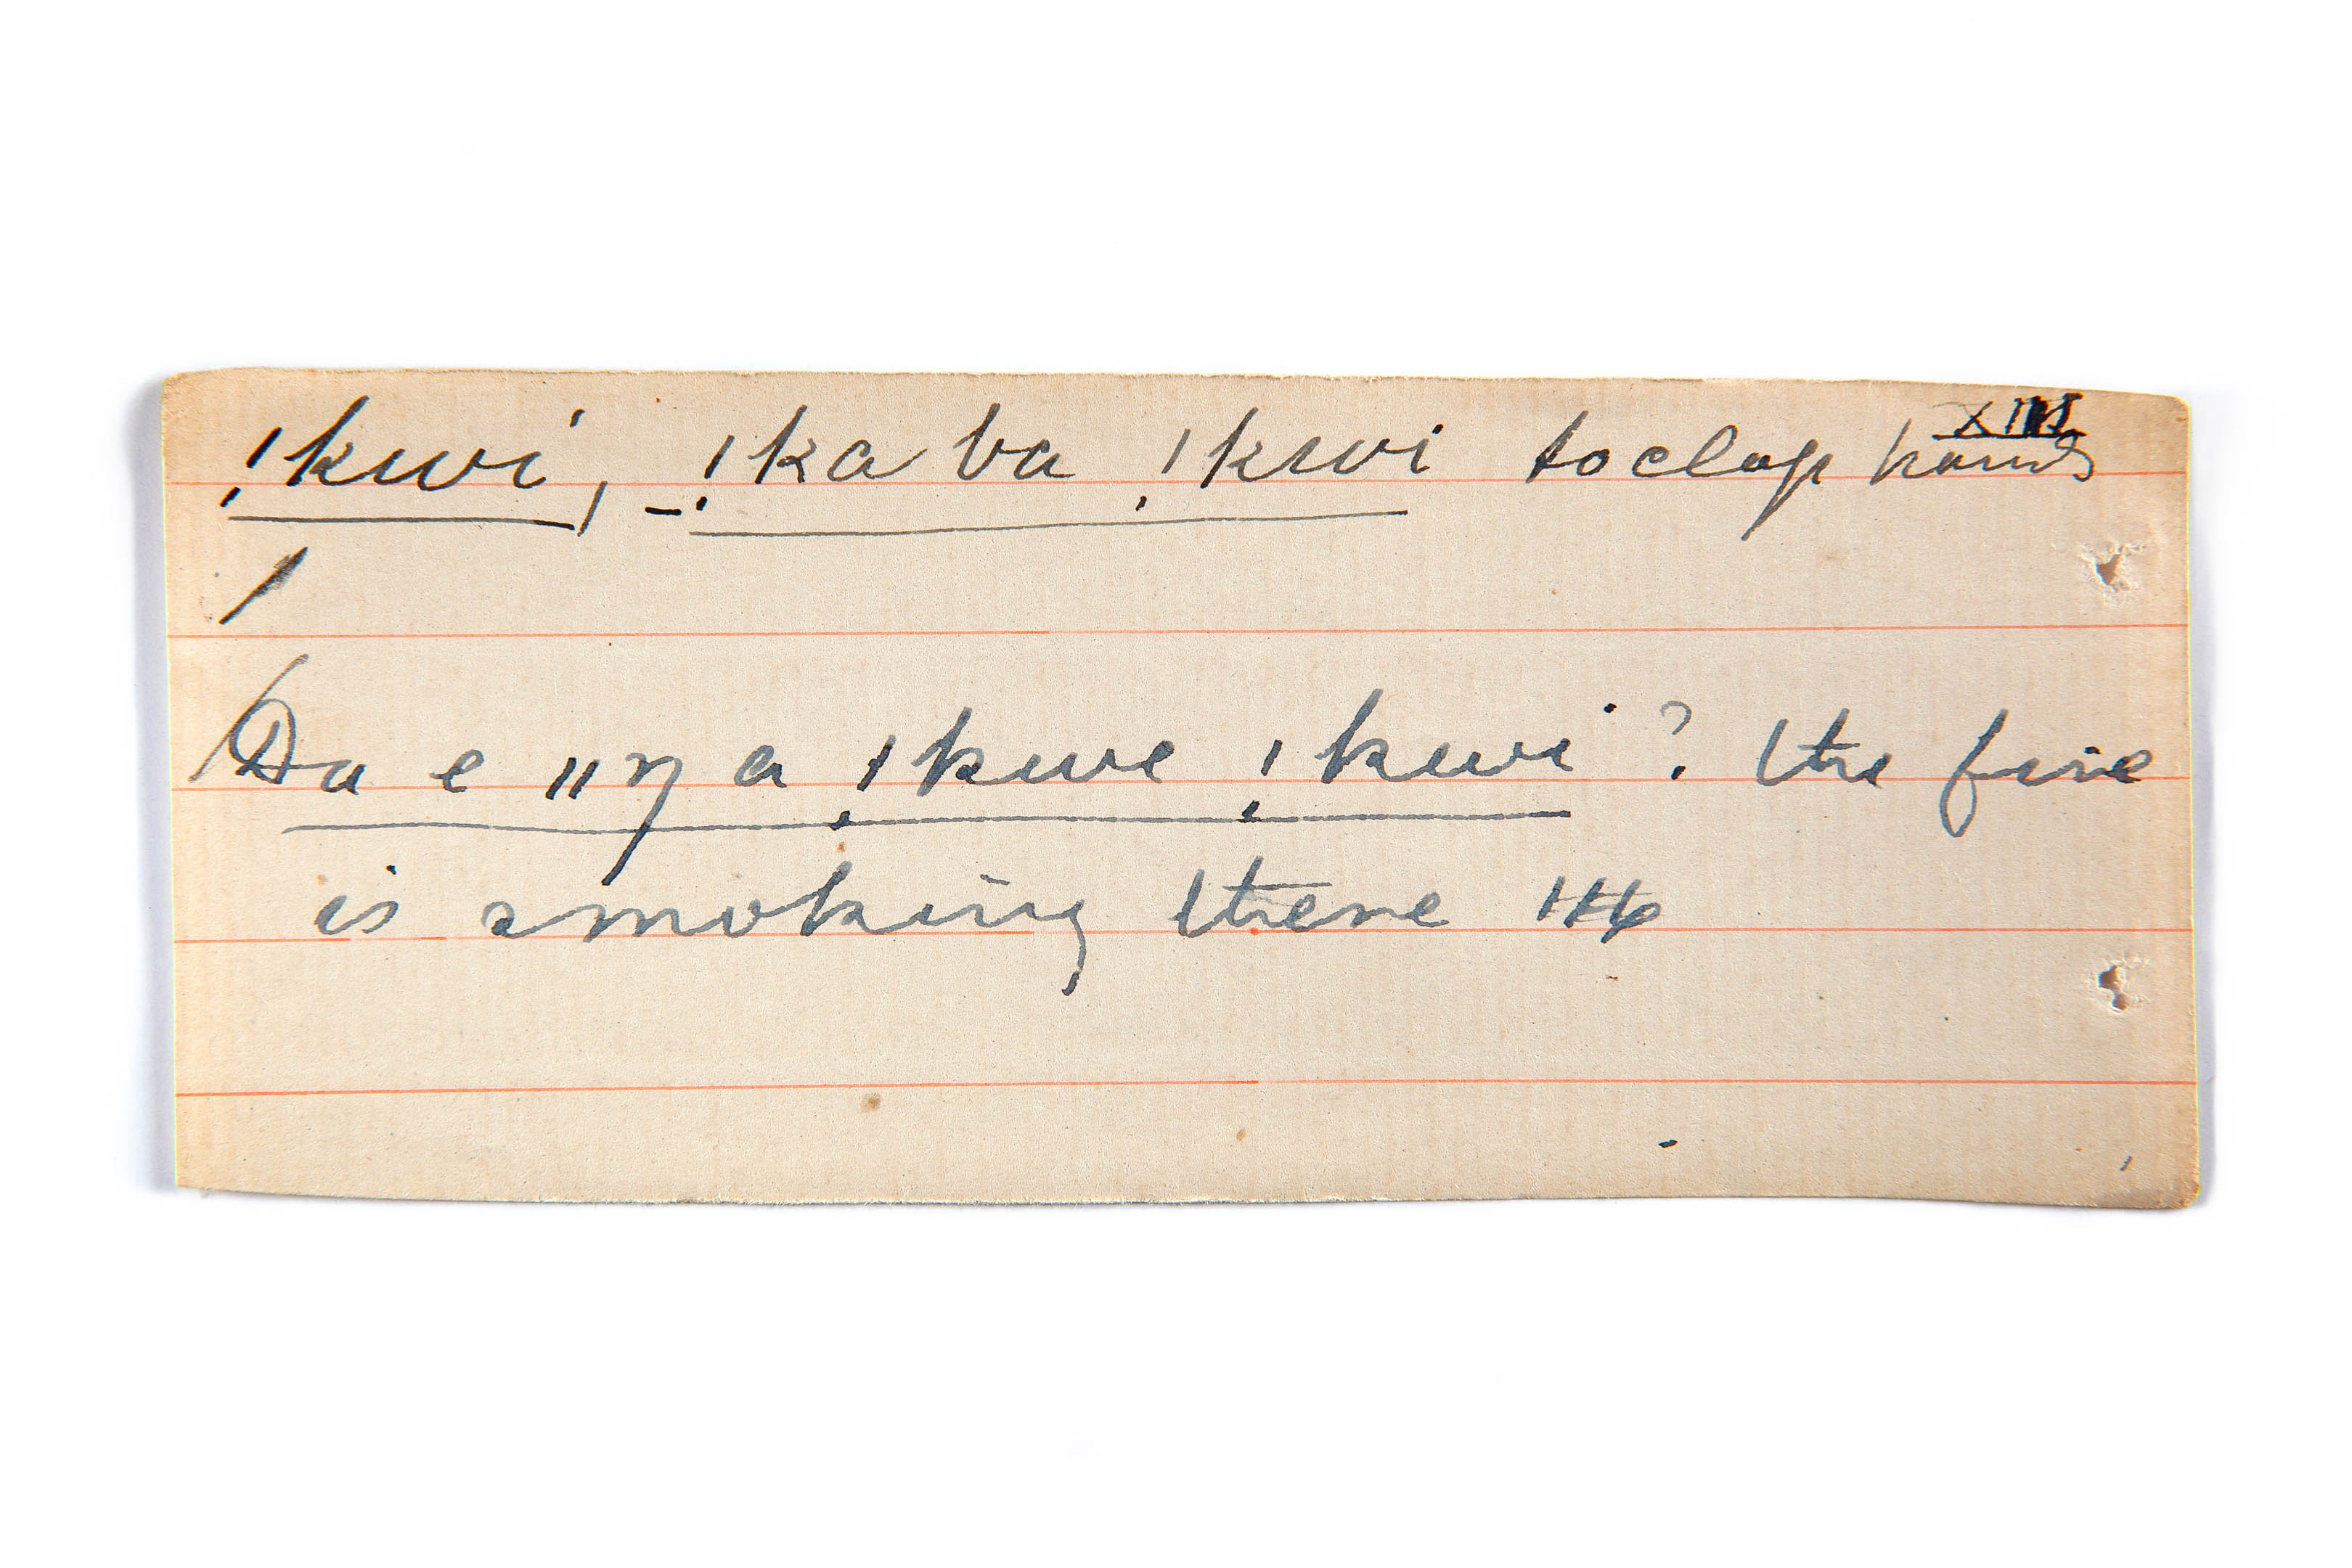 !kwi, - !ka ba !kwi to clap hands
/
Da e ‖ŋ a !kwe !kwi ? the fire
is smoking there